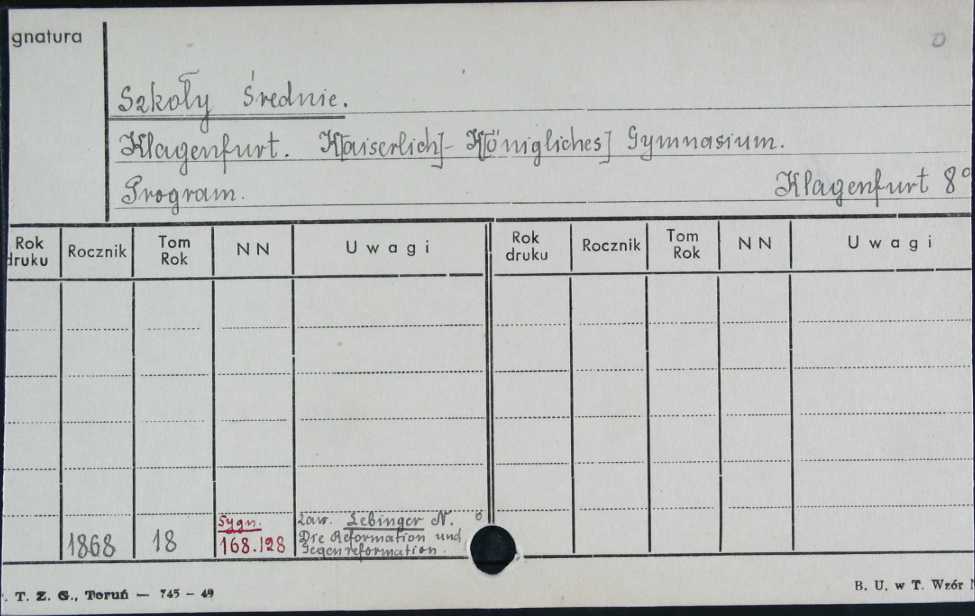 gnatura
Szkoły Średnie.
Klagenfurt. K[aiserlich]- K[önigliches] Gymnasium.
Program. Klagenfurt 8°
Rok druku Rocznik Tom Rok NN Uwagi Rok druku Rocznik Tom Rok NN Uwagi
Sygn. Zaw. Lebinger N.
1868 18 168.128 Die Reformation und
Gegenreformation.
T. Z. G., Toruń — 745 – 49 B. U. w T. Wzór